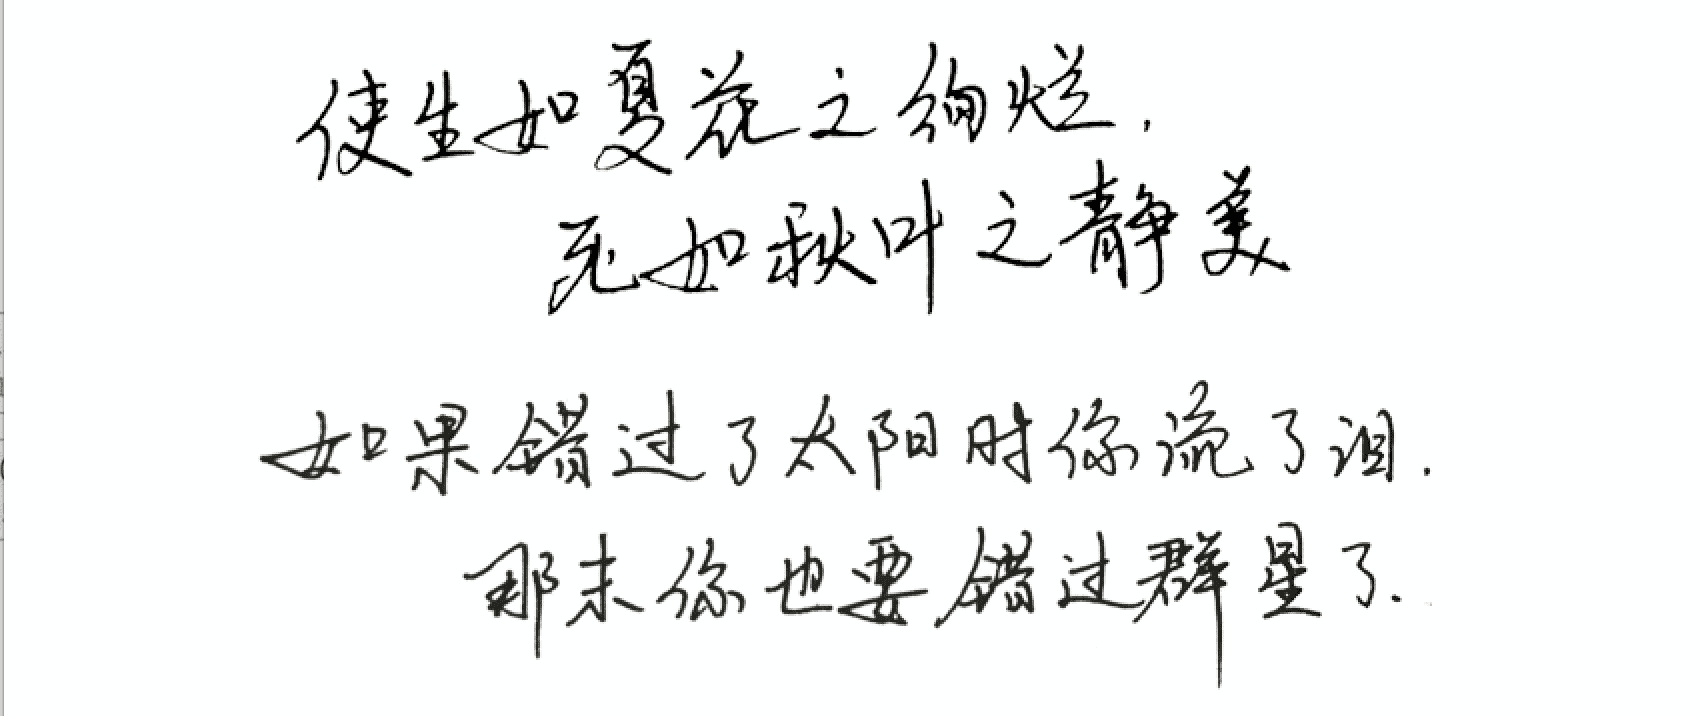 使生如夏花之绚烂，
死如秋叶之静美
如果错过了太阳时你流了泪.
那末你也要错过群星了.